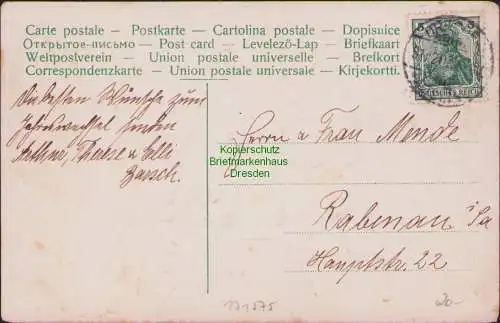 Carte postale – Postkarte – Cartolina postale – Dopisnice
Открытое письмо – Post card – Levelező-Lap – Briefkaart
Weltpostverein – Union postale universelle – Brefkort
Correspondenzkarte – Union postale universale – Kirjekortti.
DEUTSCHES REICH
Die besten Wünsche zum
Jahreswechsel senden
Arthur, Therese u. Elli
Barsch.
Herrn u Frau Mende
Rabenau i/Sa
Hauptstr. 22
Kopierschutz
Briefmarkenhaus
Dresden
171575
20-